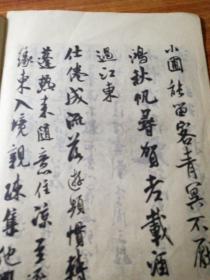 小園能留客青冥不厭
鴻秋帆尋賀老載酒
過江東
仕倦成流落遊頻慣轉
蓬熱來隨意住涼至
緣東入境親疎集他